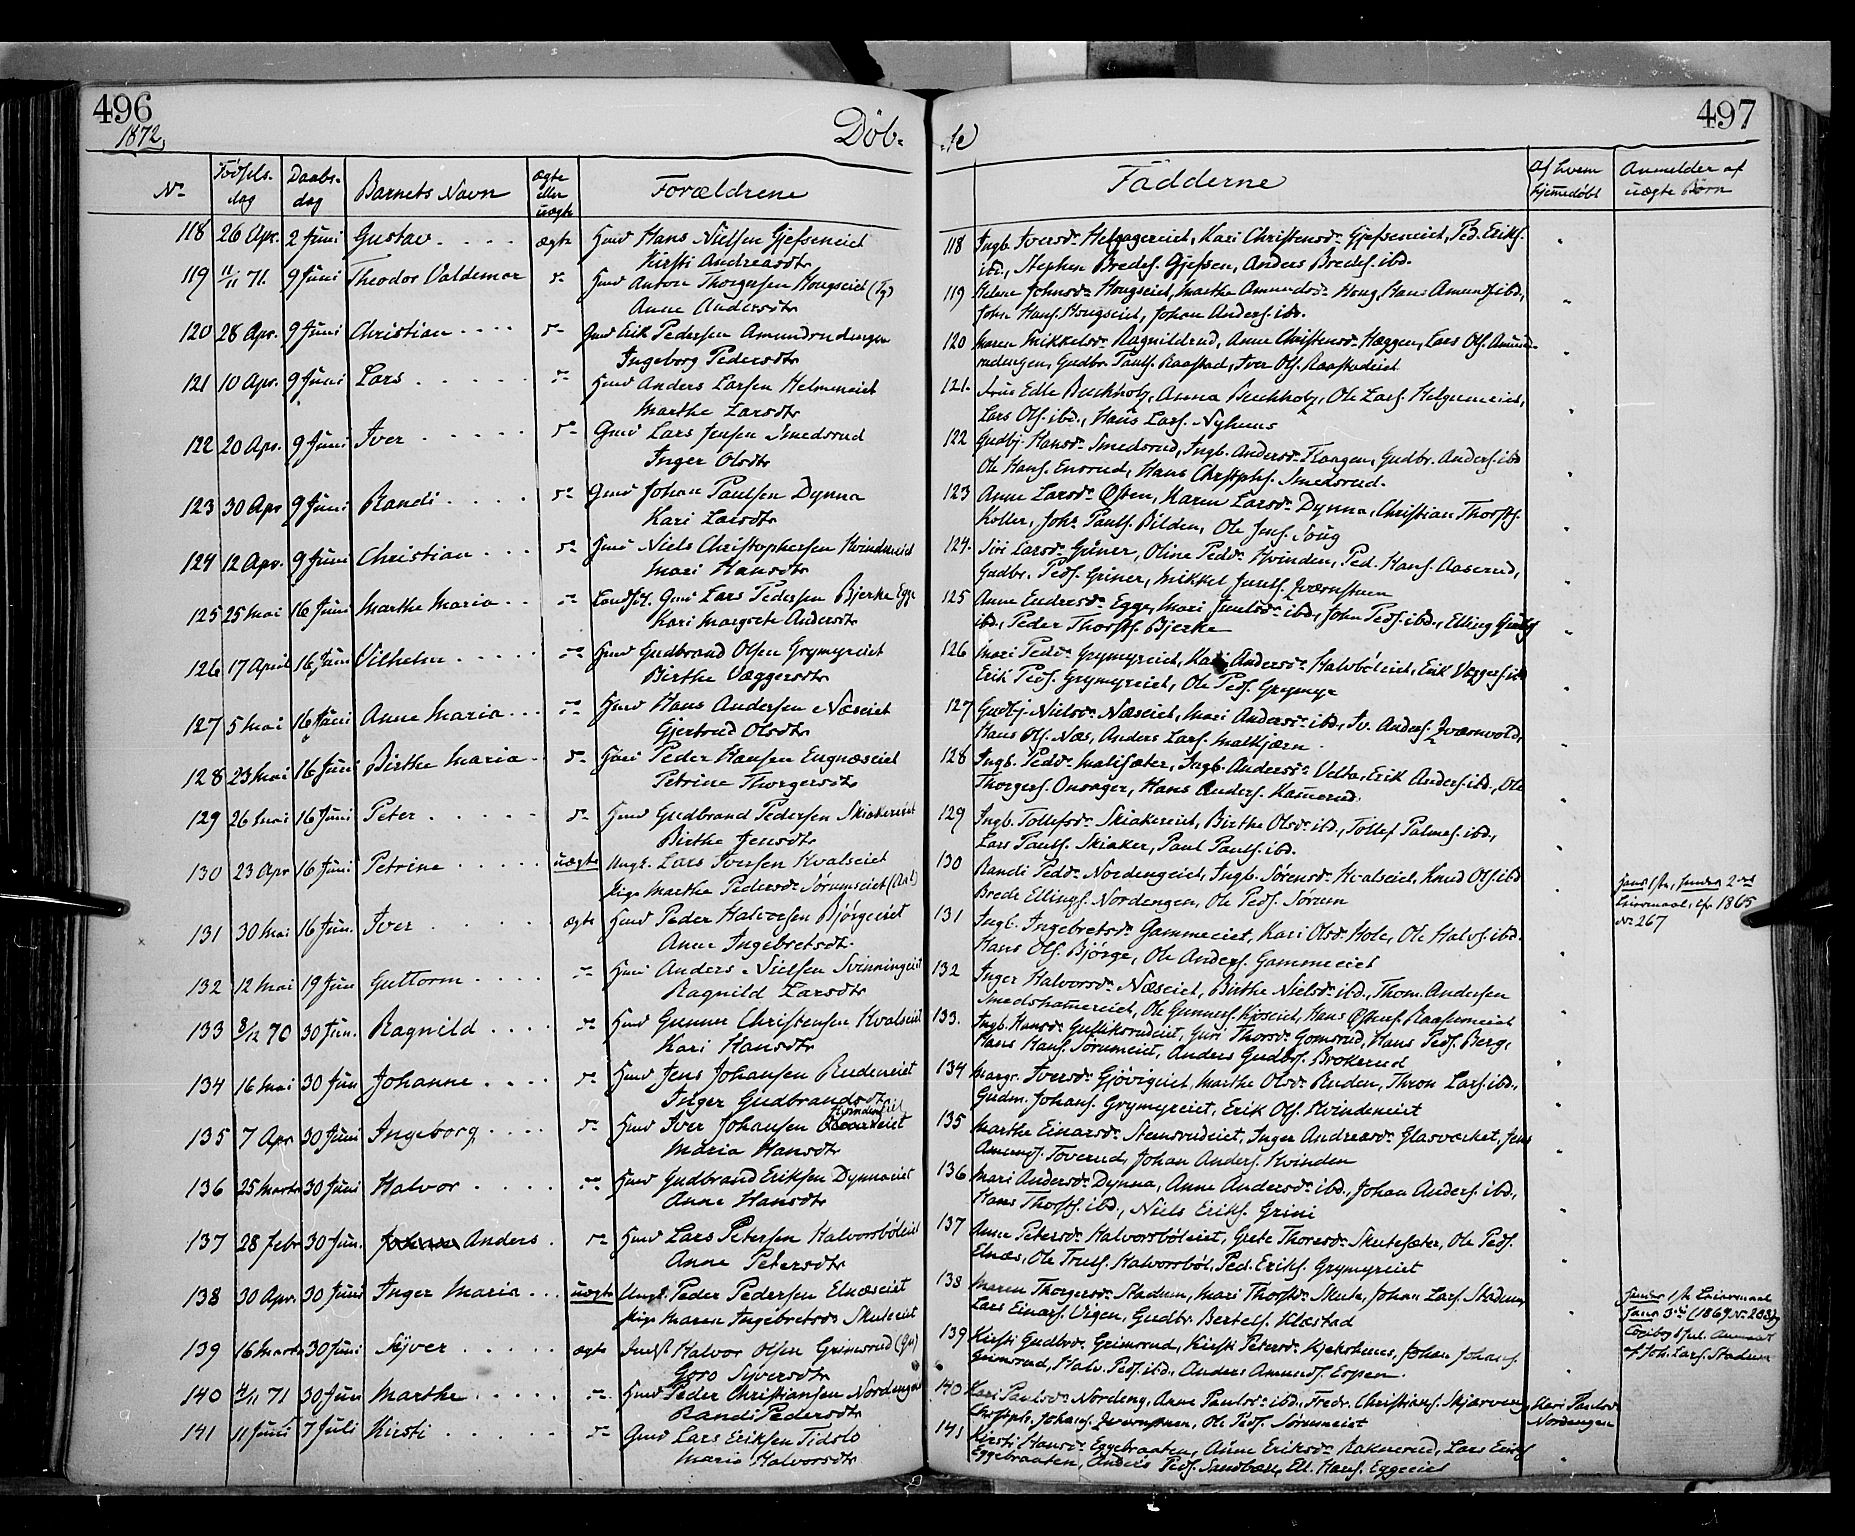 496
1872,
Döb-
Nr Födsels-dag Daabs-dag Barnets Navn ægte eller uægte Forældrene
118 26 Apr. 2 Juni Gustav ægte Hmd Hans Nielsen Gjefseneiet
Kirsti Andreasdtr
119 11/11 71. 9 Juni Theodor Valdemar Hmd Anton Thorgersen Hougseiet
Anne Andersdtr
120 28 Apr. 9 Juni Christian Gmd Erik Pedersen Amundrudengen
Ingeborg Pedersdtr
121 10 Apr. 9 Juni Lars Hmd Anders Larsen Helmeneiet
Marthe Larsdtr
122 20 Apr. 9 Juni Iver Gmd Lars Jensen Smedsrud
Inger Olsdtr
123 30 Apr 9 Juni Randi Gmd Johan Paulsen Dynna
Kari Larsdtr
124 12 Apr. 9 Juni Christian Hmd Niels Christophersen Kvindeneiet
Mari Hansdtr
125 25 Mai 16 Juni Marthe Maria Gmd Lars Pedersen Bjerke Egge
Kari Margrete Andersdtr
126 17 April 16 Juni Vilhelm Hmd Gudbrand Olsen Grymyreiet
Birthe Væggersdtr
127 5 Mai 16 Juni Anne Maria Hmd Hans Andersen Næseiet
Gjertrud Olsdtr
128 23 Mai 16 Juni Birthe Maria Hmd Peder Hansen Engnæseiet
Petrine Thorgersdtr
129 26 Mai 16 Juni Peter Hmd Gudbrand Pedersen Skiakereiet
Birthe Jensdtr
130 23 Apr 16 Juni Petrine uægte Ungk. Lars Iversen Kvalseiet
Pige Marthe Pedersdr Sørumseiet
131 30 Mai 16 Jun. Iver ægte Hmd Peder Halvorsen Bjørgeeiet
Anne Ingebretsdtr
132 12 Mai 19 Jun Guttorm Hmd Anders Nielsen Svinningeiet
Ragnild Larsdtr
133 8/12 70 30 Jun. Ragnild Hmd Gunner Christensen Kvalseiet
Kari Hansdtr
134 16 Mai 30 Jun Johanne Hmd Jens Johansen Rudeneiet
Inger Gudbrandsdtr
135 7 Apr 30 Juni Ingeborg Hmd Iver Johansen Kvindeneiet
Maria Hansdtr
136 25 Marts 30 Juni Halvor Hmd Gudbrand Eriksen Dynnaeiet
Anne Hansdtr
137 28 Febr 30 Jun. Anders Hmd Lars Petersen Halvorsböleiet
Anne Petersdtr
138 30 Apr. 30 Juni Inger Maria uægte Ungk. Peder Pedersen Elnæseiet
Pige Maren Ingebretsdr Skuteeiet
139 16 Marts 30 Juni Syver ægte Halvor Olsen Grimsrud
Goro Syversdtr
140 4/11 71 30 Jun Marthe Hmd Peder Christiansen Nordengen
Randi Pedersdtr
141 11 Juni 7 Juli Kirsti Gmd Lars Eriksen Tidslo
Maria Halvorsdtr
497
-te
Fadderne Af hvem hjemmedöbt Anmelder af uægte Børn
118 Ingb. Iversdr Helgagereiet, Kari Christensdr Gjefseneiet, Ped. Eriks.
ibd., Stephen Bredes. Gjefsen, Anders Bredes. ibd.
119 Helene Johnsdr Hougseiet, Marthe Amundsdr Houg, Hans Amunds. ibd.,
John Hans. Hougseiet, Johan Anders. ibd.
120 Maren Mikkelsdr Ragnildrud, Anne Christensdr Hæggen, Lars Ols. Amund-
rudengen, Gudbr. Pauls. Raastad, Iver Ols. Raastadeiet
121. Edle Buchholz, Anna Buchholz, Ole Lars. Helgumeiet,
Lars Ols. ibd., Hans Lars. Nyhuus
122 Gudbj. Hansdr Smedsrud, Ingb. Andersdr Haagen, Gudbr. Anders. ibd
Ole Hans. Ensrud, Hans Chrstphs. Smedsrud.
123 Anne Larsdr Østen, Karen Larsdr Dynna, Christian Thorsts.
Koller, Johs Pauls. Bilden, Ole Jens. Soug
124. Siri Larsdr Griner, Oline Pedsdr Kvinden, Ped. Hans. Aaserud,
Gudbr. Peds. Griner, Mikkel Juuls. Qværnstuen
125 Anne Endresdr Egge, Mari Juulsdr ibd., John Peds. ibd., Elling
ibd., Peder Thorsts. Bjerke
126 Mari Pedsdr Grymyreiet, Kari Andersdr Halvböleiet, Erik Væggers. ibd
Erik Peds. Grymyreiet, Ole Peds. Grymyr
127 Gudbj. Nielsdr Næseiet, Mari Andersdr ibd., Iv. Anders. Qværnvold,
Hans Ols. Næs, Anders Lars. Malkjærn.
128 Ingb. Pedsdr Malisæter, Ingb. Andersdr Velta, Erik Anders. ibd., Ole
Thorgers. Onsager, Hans Anders. Kamerud.
129 Ingb. Tollefsdr Skiakereiet, Birthe Olsdr ibd., Tollef Palmes. ibd.,
Lars Pauls. Skiaker, Paul Pauls. ibd.
130 Randi Pedsdr Nordengeiet, Ingb. Sörensdr Kvalseiet, Knud Ols. ibd
Brede Ellings. Nordengen, Ole Peds. Sörum
2det
Leiermaal, cfr 1865
Nr. 267
131 Ingb. Ingebretsdr Gammeeiet, Kari Olsdr Hole, Ole Halvs. ibd.
Hans Ols. Bjørge, Ole Anders. Gammeeiet
132 Inger Halvorsdr Næseiet, Birthe Nielsdr ibd., Thom. Andersen
Smedshamereiet, Ole Gunners. Kjoseiet, Hans Østens. Raasumeiet
133. Ingb. Hansdr Gulliksrudeiet, Guri Thorsdr Gomsrud, Hans Peds. Berg,
Hans Hans. Sörumeiet, Anders Gudbs. Brokerud
134 Margr. Iversdr Gjövigeiet, Marthe Olsdr Ruden, Thron Lars. ibd.,
Gudm. Johans. Grymyreiet, Erik Ols. Kvindeneiet
135 Marthe Einarsdr Stensrudeiet, Inger Andreasdr Glasværket, Jens
Amunds. Toverud, Johan Anders. Kvinden
136 Mari Andersdr Dynna, Anne Andersdr ibd., Johan Anders. ibd.,
Hans Thorsts. ibd., Niels Eriks. Grini
137 Anne Petersdr Halvorsböleiet, Grete Thoresdr Skutesæter, Ole Peds.
Elnæs, Ole Truls. Halvorsböl, Ped. Eriks. Grymyreiet
138 Maren Thorgersdr Stadum, Mari Thorstsdr Skute, Johan Lars. Stadum
Lars Einars. Vigen, Gudbr. Bertels. Klæstad
1ste Leiermaal
(1869 Nr. 283)
af Joh. Lars. Stadum
139 Kirsti Gudbrsdr Grimsrud, Kirsti Petersdr Kjekshuus, Johan Johans.
Grimsrud, Halv. Peds. ibd., Anders Amunds. Espen.
140 Kari Paulsdr Nordeng, Anne Paulsdr ibd., Fredr. Christians. Skjærvang,
Chrstph. Johans. Qværnstuen, Ole Peds. Sörumeiet
Kari Paulsd
Nordengen
141 Kirsti Hansdr Eggebraaten, Anne Eriksdr Raknerud, Lars Eriks.
Eggebraaten, Anders Peds. Sandbæk, Ell. Hans. Eggeeiet